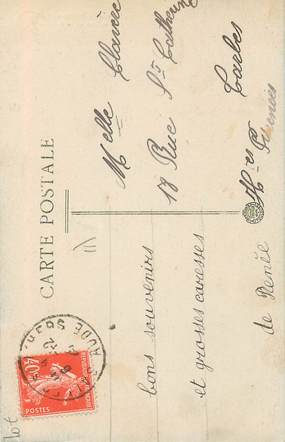 CARTE POSTALE
bons souvenirs
et grosses caresses
de Renée
Melle Claverie
18 Rue Ste Catherine
Tarbes
Htes Pyrénées
POSTES
AUDE
Lot